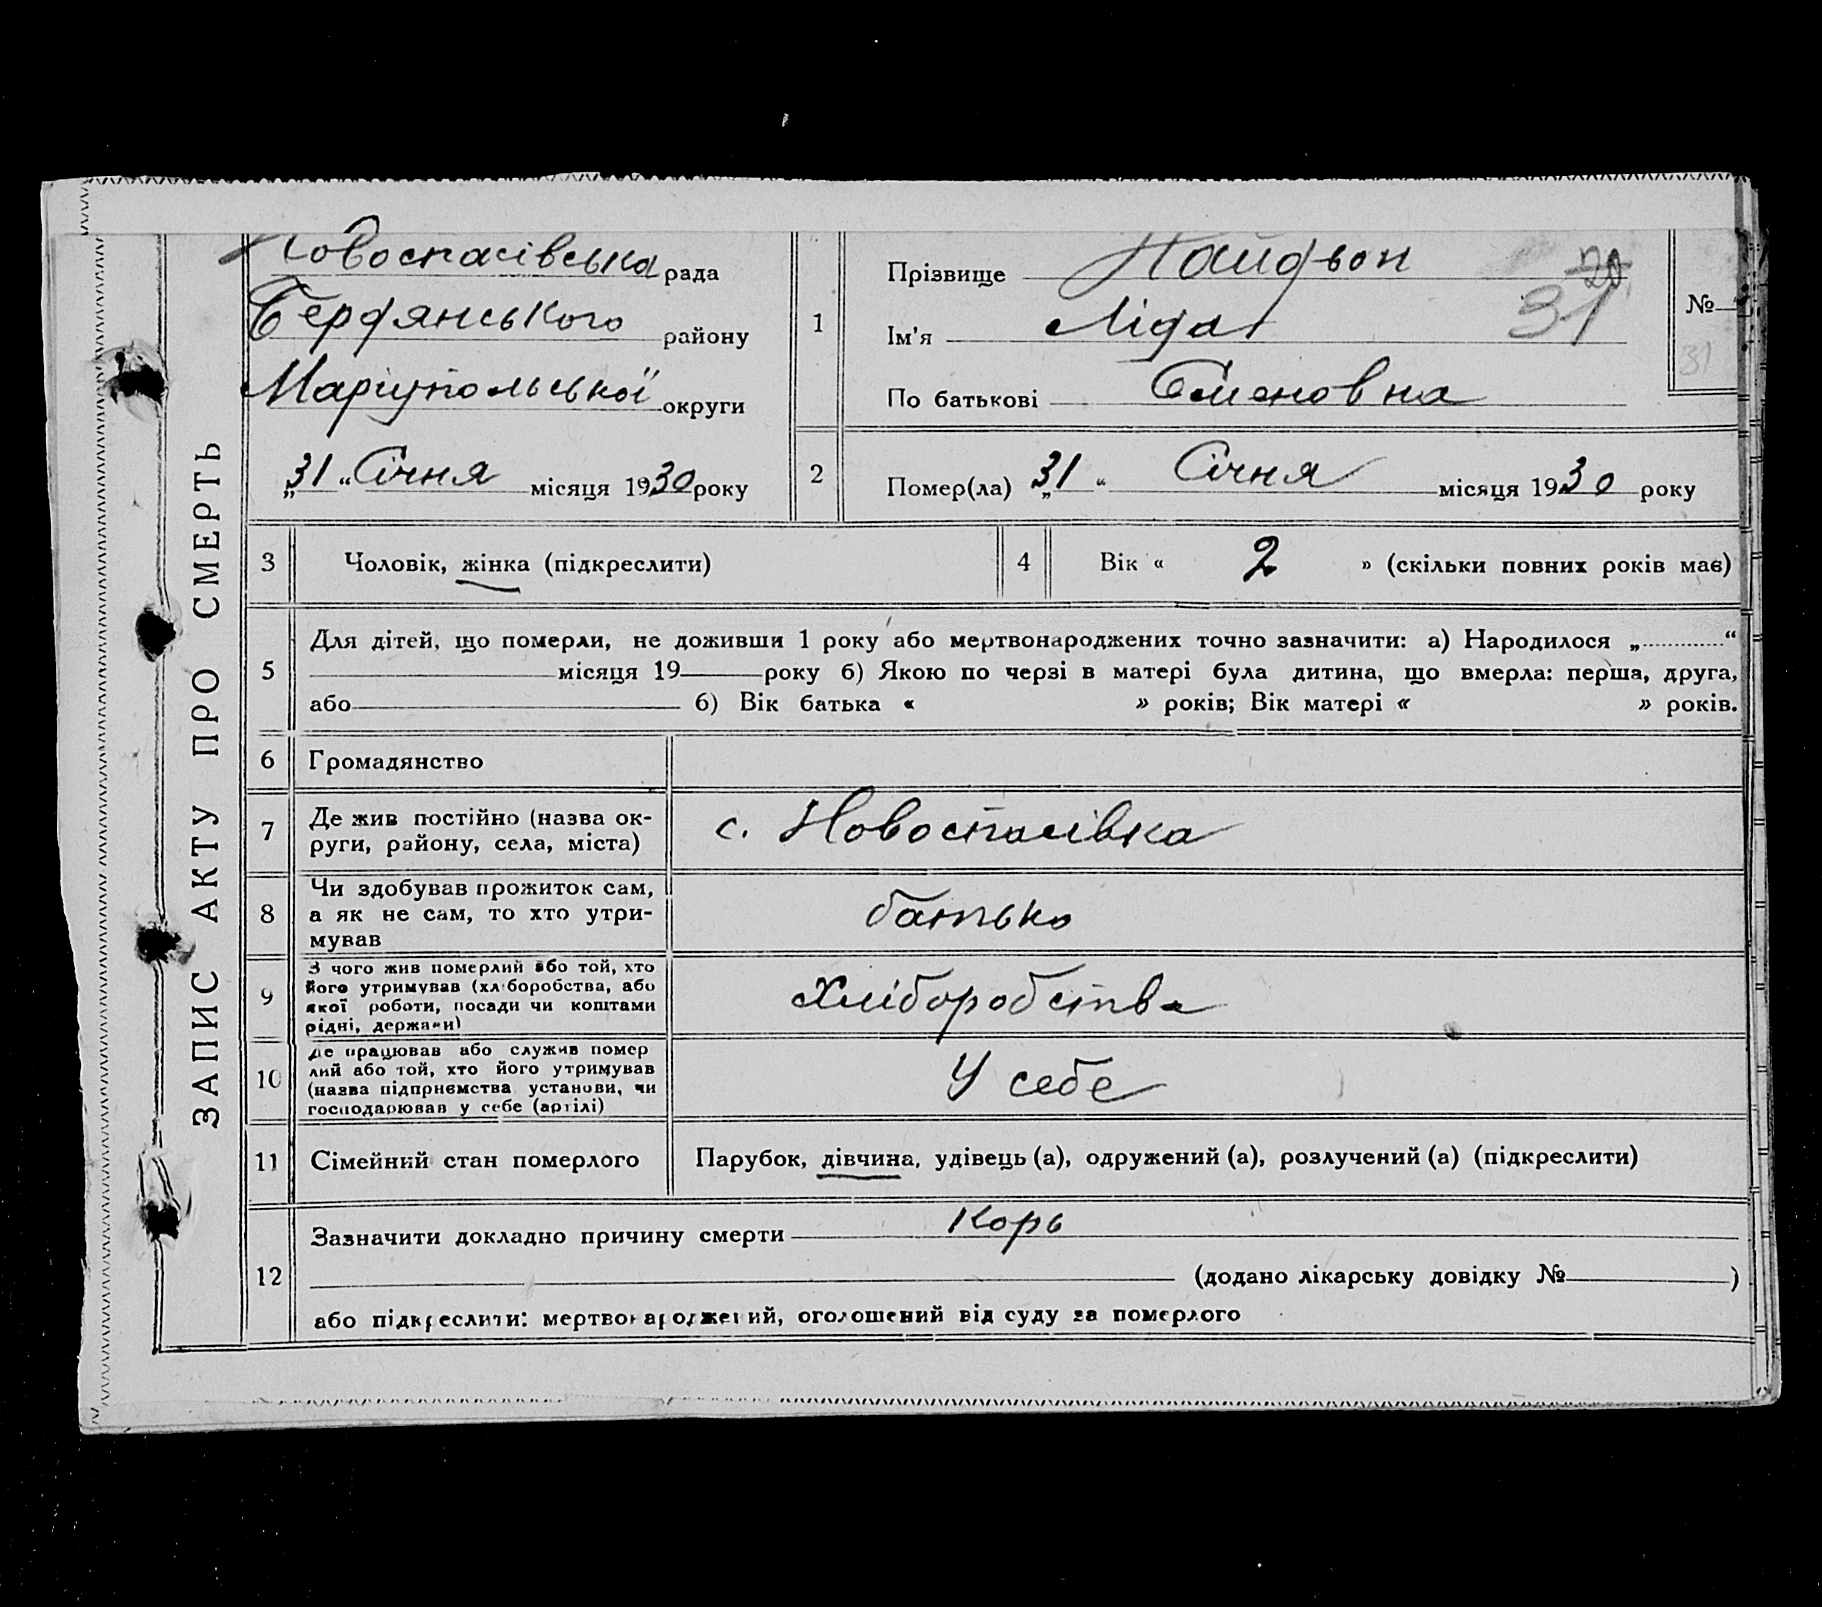 ЗАПИС АКТУ ПРО СМЕРТЬ
Новоспасівська рада
Бердянського району
Маріупольської округи
„31“ Січня місяця 1930 року
1
Прізвище Найдьон
Ім'я Ліда
По батькові Семеновна
20
31
№
31
2
Помер(ла) „31“ Січня місяця 1930 року
3 Чоловік, жінка (підкреслити)
4 Вік « 2 » (скільки повних років має)
5
Для дітей, що померли, не доживши 1 року або мертвонароджених точно зазначити: а) Народилося „ “
місяця 19 року б) Якою по черзі в матері була дитина, що вмерла: перша, друга,
або б) Вік батька « » років; Вік матері « » років.
6 Громадянство
7 Де жив постійно (назва ок-
руги, району, села, міста)
с. Новоспасівка
8 Чи здобував прожиток сам,
а як не сам, то хто утри-
мував
батько
9 З чого жив померлий або той, хто
його утримував (хліборобства, або
якої роботи, посади чи коштами
рідні, держави)
Хліборобства
10 Де працював або служив помер
лий або той, хто його утримував
(назва підприємства установи, чи
господарював у себе (артілі)
У себе
11 Сімейний стан померлого
Парубок, дівчина, удівець (а), одружений (а), розлучений (а) (підкреслити)
12 Зазначити докладно причину смерти Корь
(додано лікарську довідку № )
або підкреслити: мертвонароджений, оголошений від суду за померлого